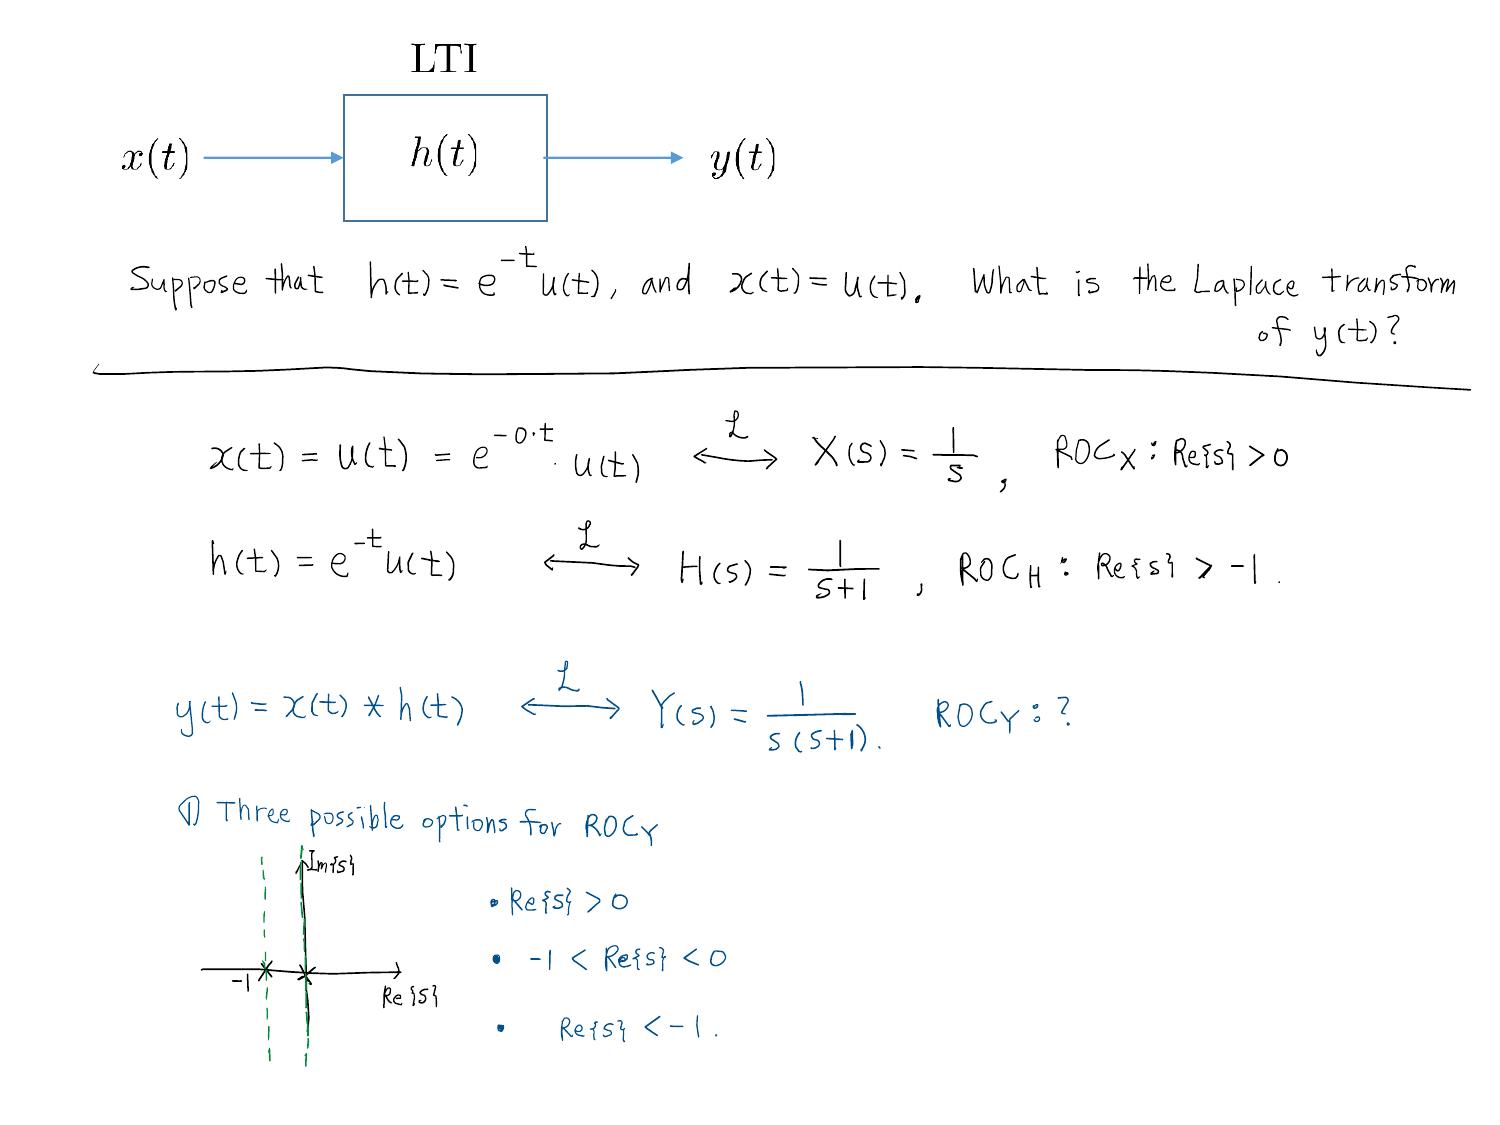 LTI
x(t) h(t) y(t)
Suppose that h(t) = e^{-t} u(t), and x(t) = u(t). What is the Laplace transform
of y(t)?
x(t) = u(t) = e^{-0·t} · u(t) ⟷^{ℒ} X(s) = 1/s , ROC_X : Re{s} > 0
h(t) = e^{-t} u(t) ⟷^{ℒ} H(s) = 1/(s+1) , ROC_H : Re{s} > -1.
y(t) = x(t) * h(t) ⟷^{ℒ} Y(s) = 1/(s(s+1)). ROC_Y : ?
① Three possible options for ROC_Y
Im{s}
• Re{s} > 0
• -1 < Re{s} < 0
-1
Re{s}
• Re{s} < -1.